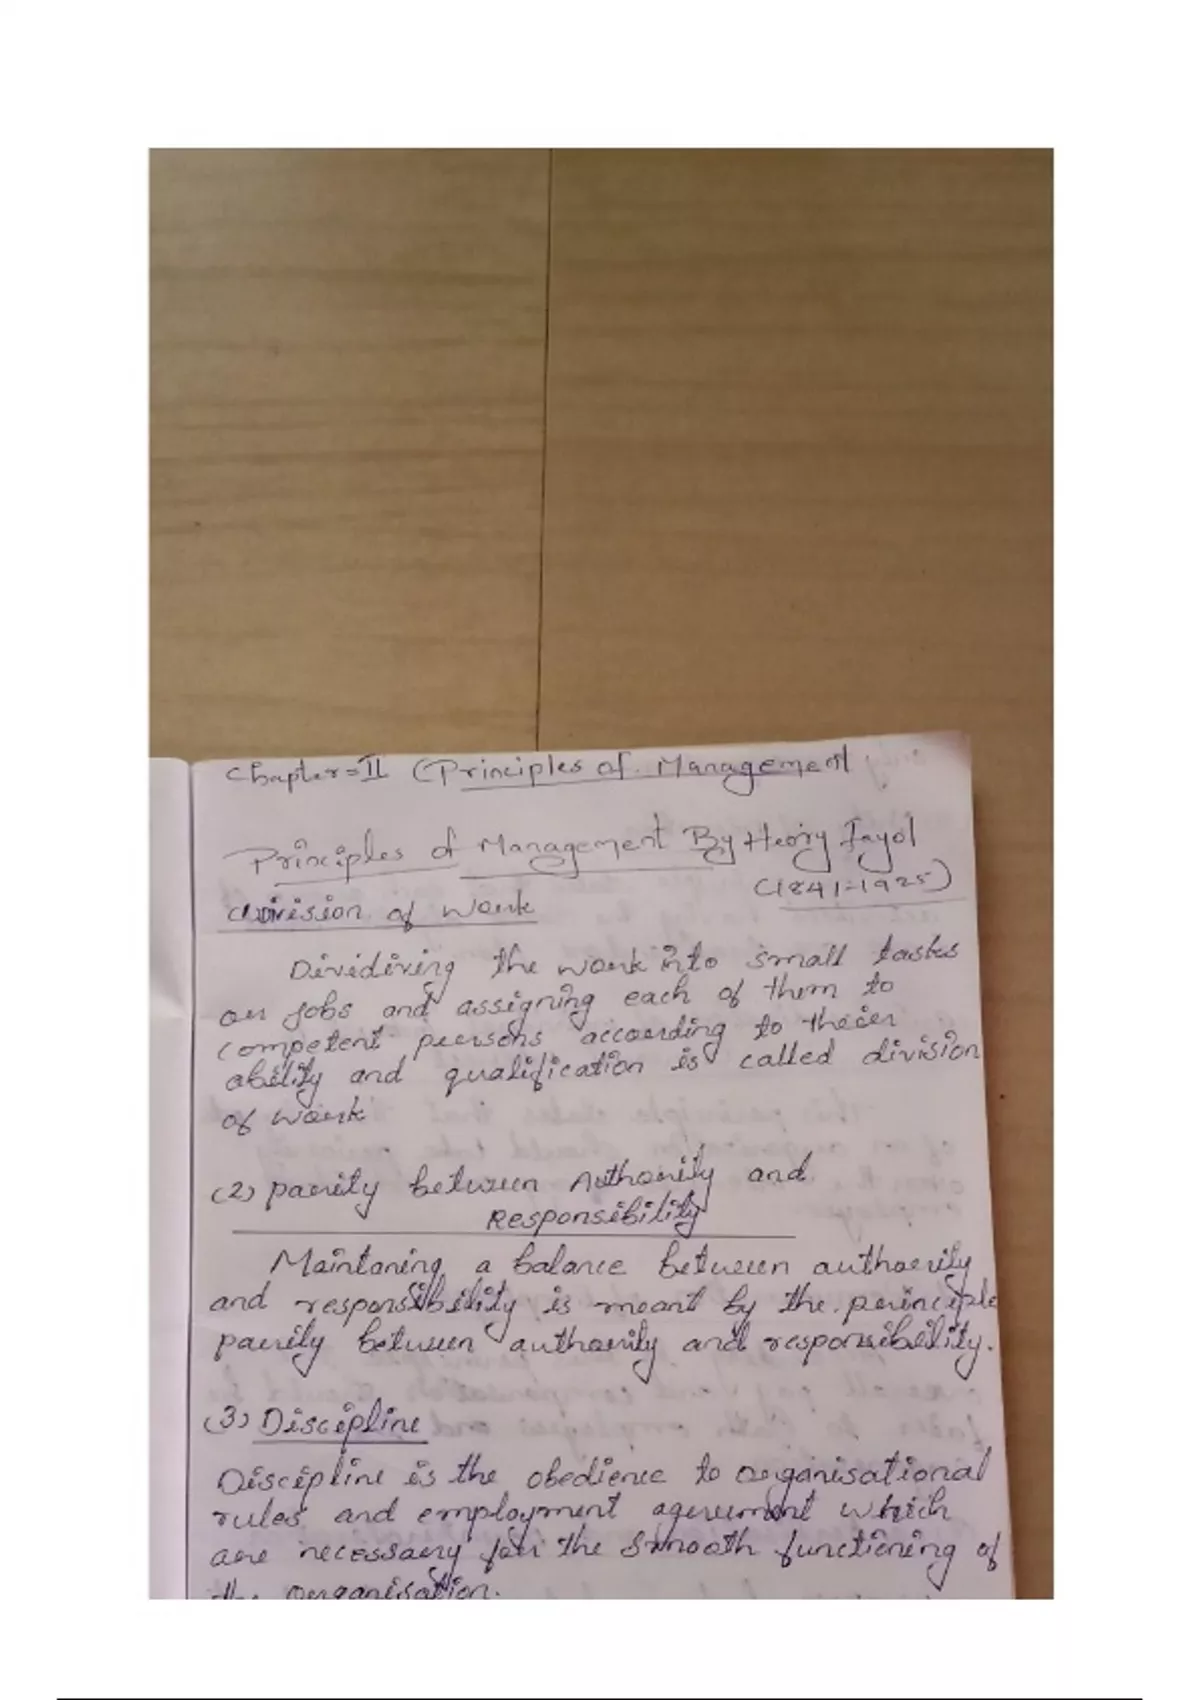 Chapter=II (Principles of Management
Principles of Management By Henry Fayol
(1841-1925)
(1) Division of work
Dividiving the work into small tasks
or jobs and assigning each of them to
competent persons according to their
ability and qualification is called division
of work
(2) parity between Authority and
Responsibility
Maintaning a balance between authority
and responsibility is meant by the principle
parity between authority and responsibility.
(3) Discipline
Discipline is the obedience to organisational
rules and employment agreement which
are necessary for the smooth functioning of
the organisation.